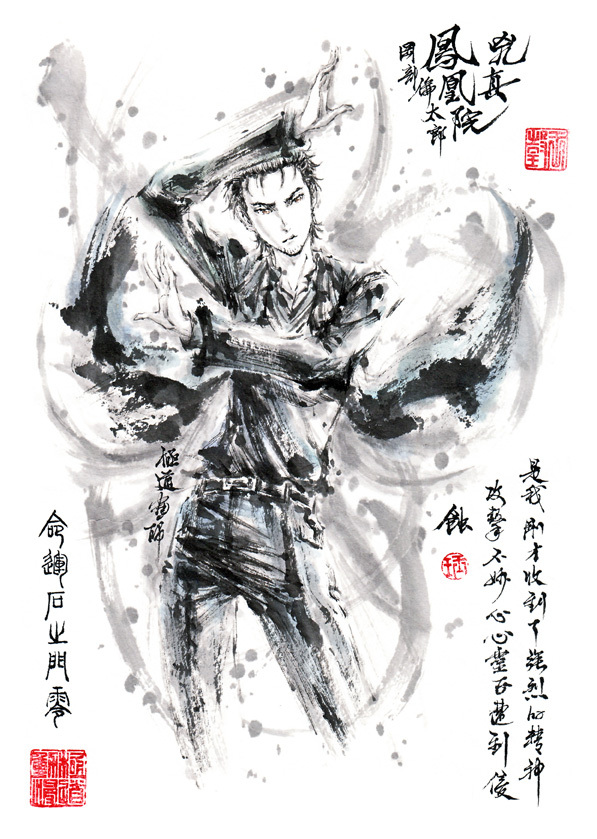 兇真
鳳凰院
岡部倫太郎
極道畫師
命運石之門零
是我剛才收到了強烈的精神
攻擊不妙心心靈正遭到侵
蝕